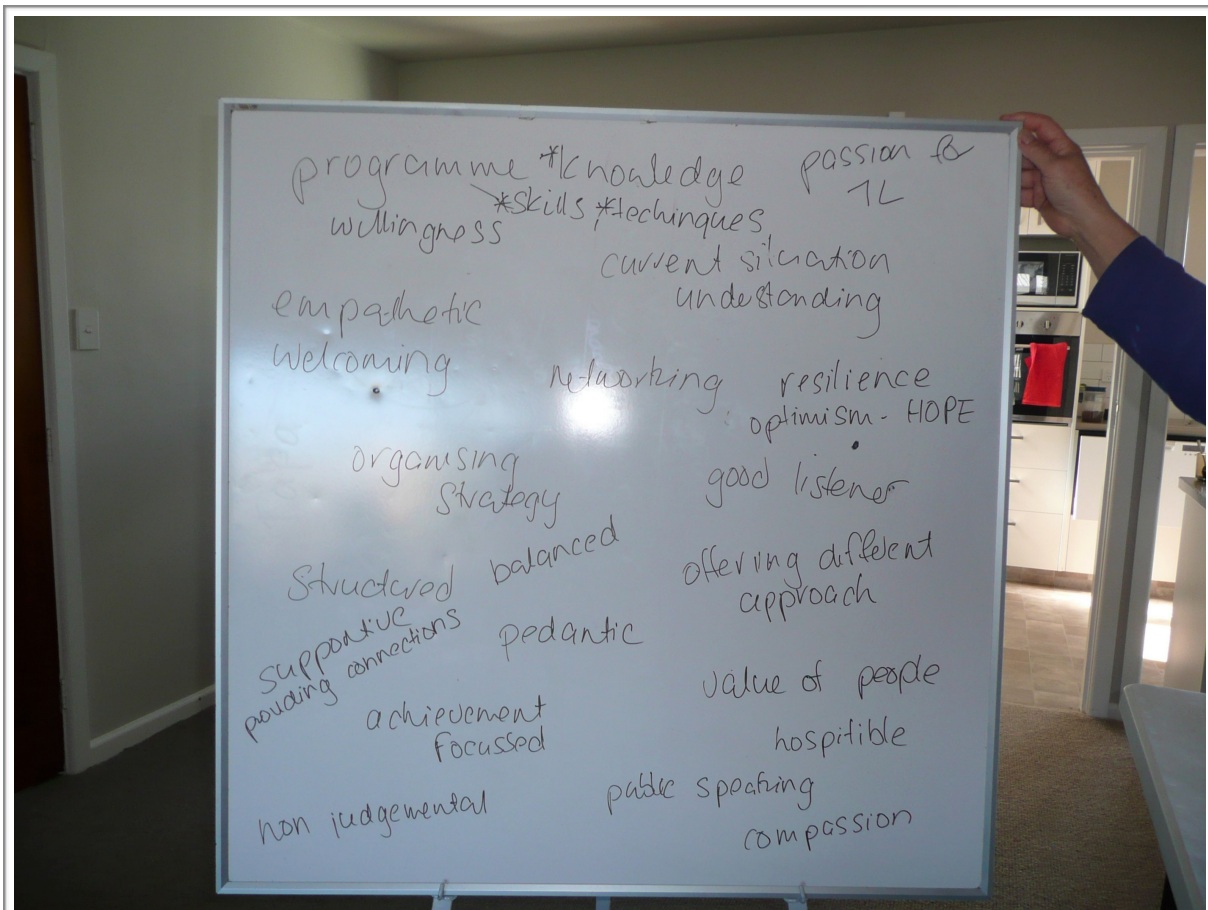 programme *knowledge
*skills, *techinques
passion for
TL
willingness
current situation
understanding
empathetic
welcoming
networking
resilience
optimism - HOPE
organising
strategy
good listener
structured
balanced
offering different
approach
supportive
providing connections
pedantic
value of people
achievement
focussed
hospitible
public speaking
non judgemental
compassion